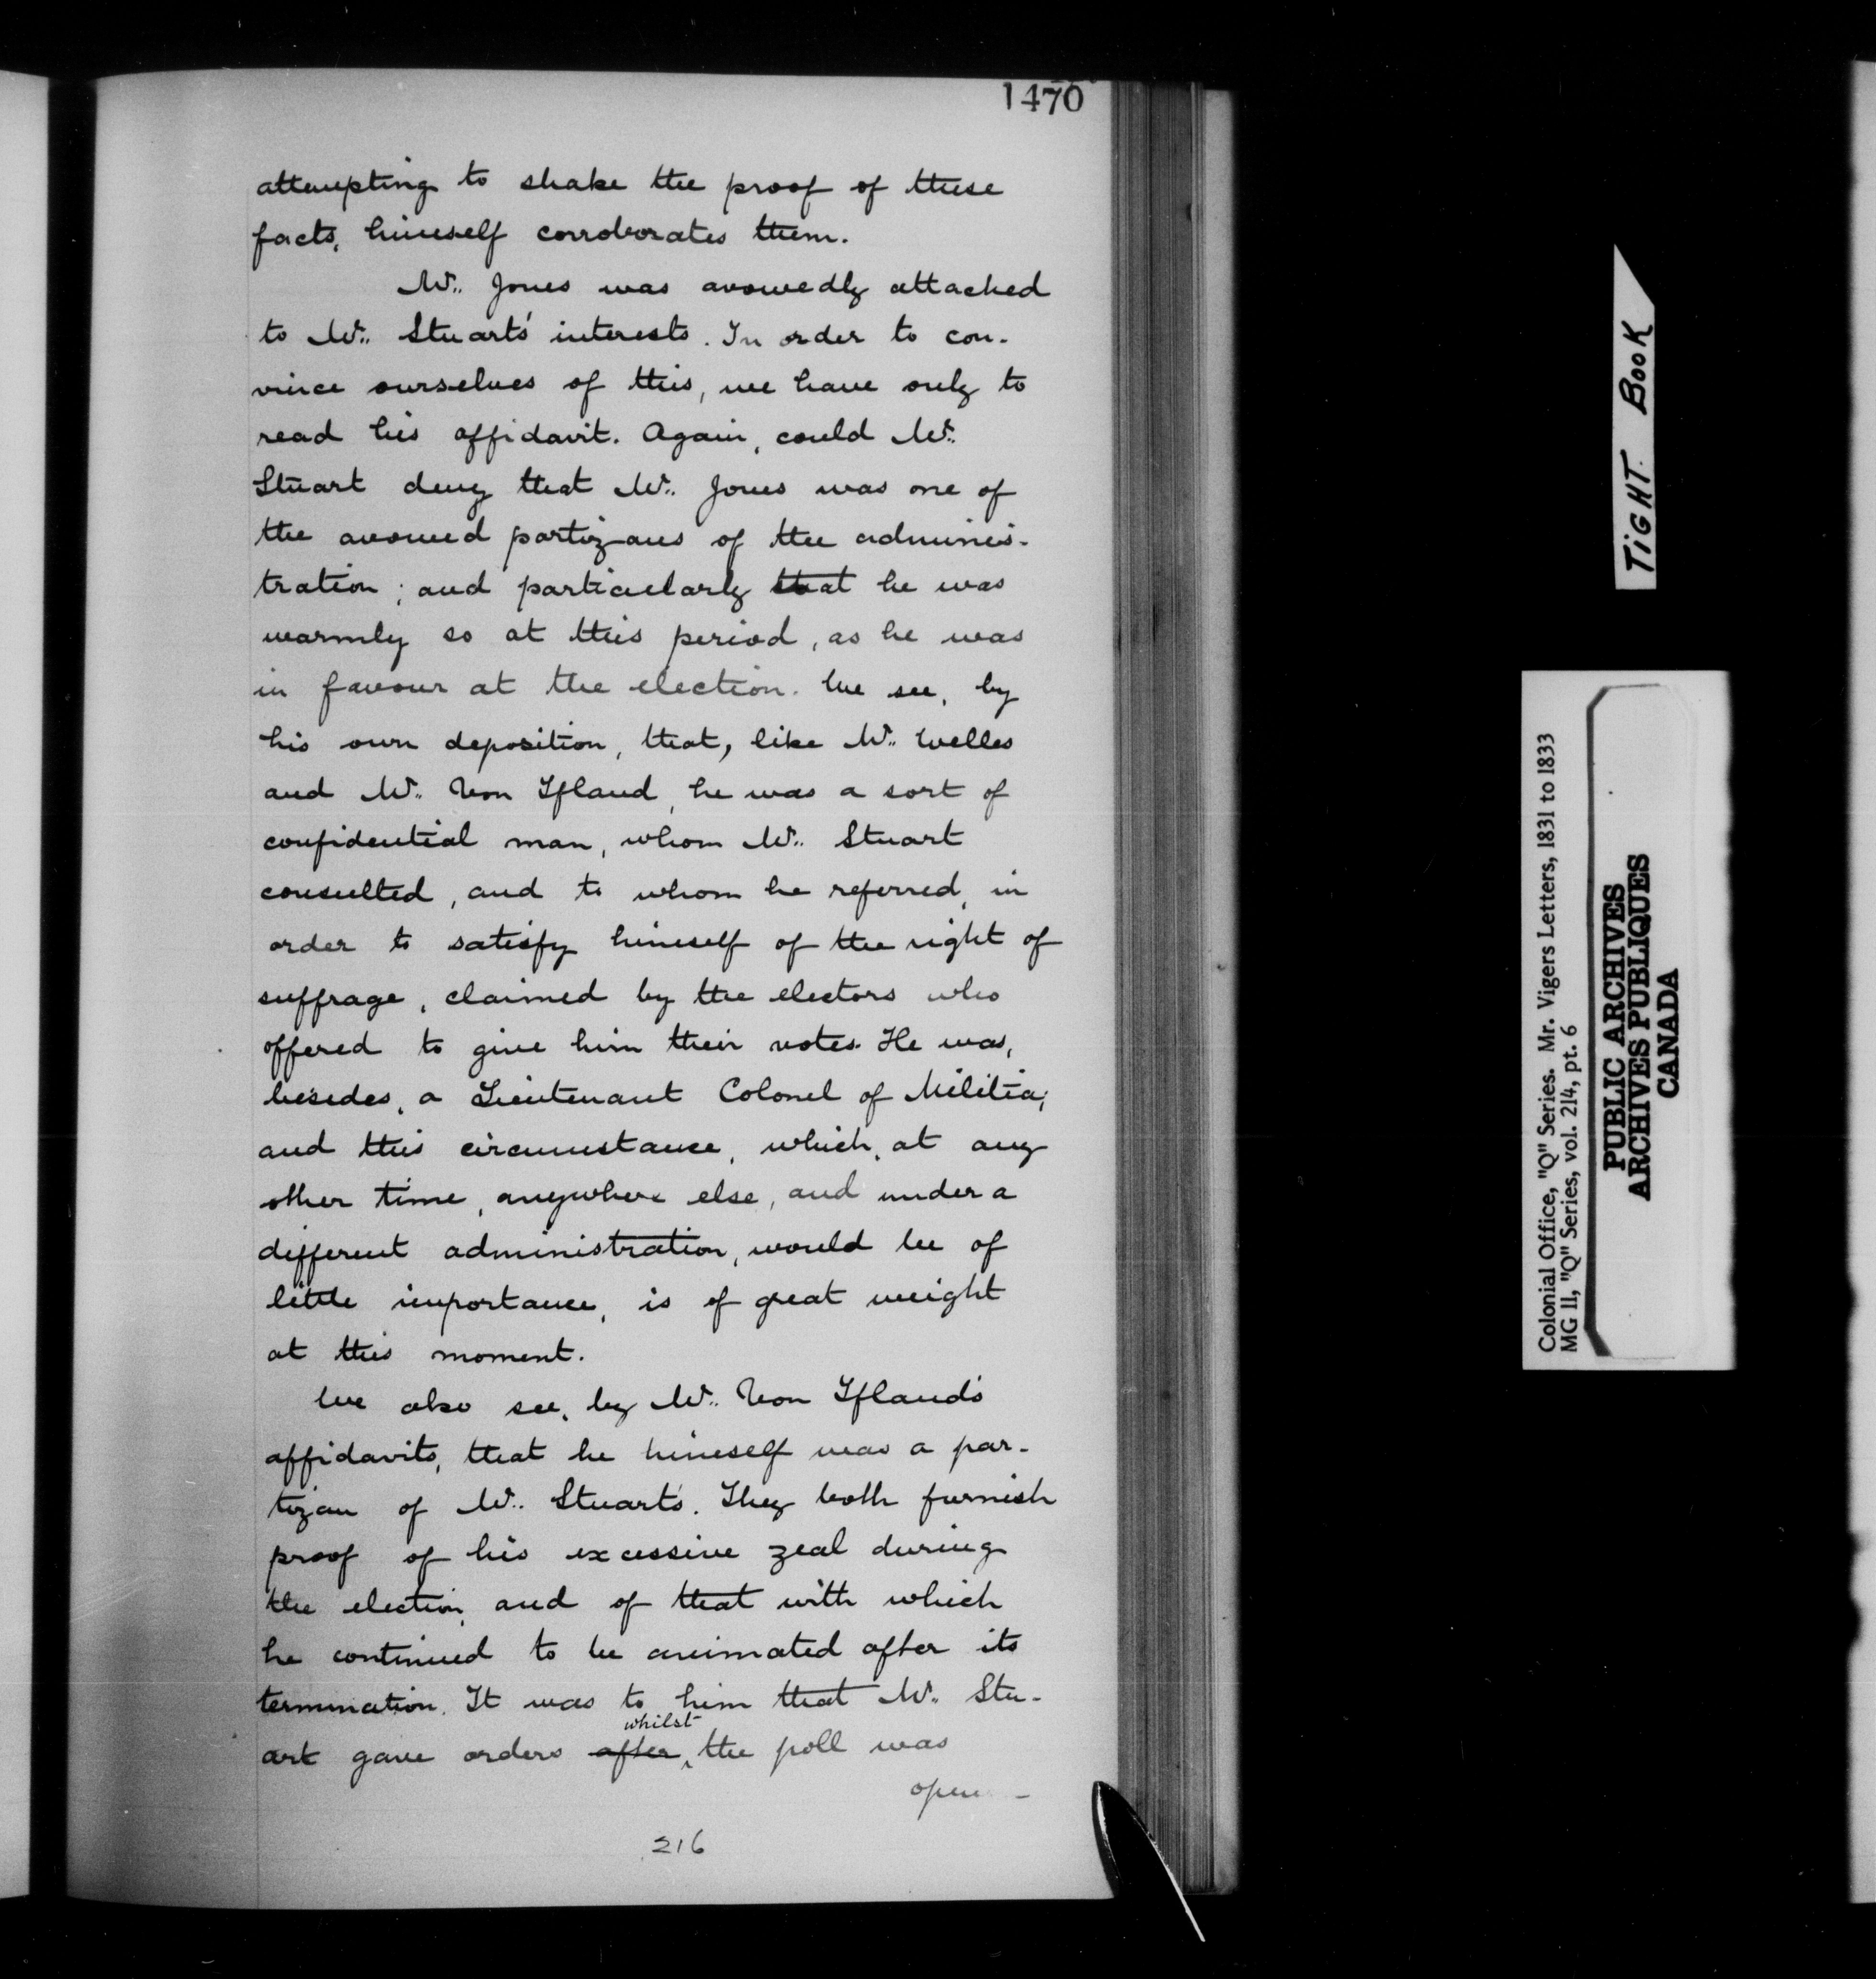 1470
attempting to shake the proof of these
facts, himself corroborates them.
Mr. Jones was avowedly attached
to Mr. Stuart's interests. In order to con-
vince ourselves of this, we have only to
read his affidavit. Again, could Mr.
Stuart deny that Mr. Jones was one of
the avowed partizans of the adminis-
tration; and particularly that he was
warmly so at this period, as he was
in favour at the election. We see, by
his own deposition, that, like Mr. Welles
and Mr. Von Ifland, he was a sort of
confidential man, whom Mr. Stuart
consulted, and to whom he referred, in
order to satisfy himself of the right of
suffrage, claimed by the electors who
offered to give him their votes. He was,
besides, a Lieutenant Colonel of Militia;
and this circumstance, which, at any
other time, anywhere else, and under a
different administration, would be of
little importance, is of great weight
at this moment.
We also see, by Mr. Von Ifland's
affidavits, that he himself was a par-
tizan of Mr. Stuart's. They both furnish
proof of his excessive zeal during
the election, and of that with which
he continued to be animated after its
termination. It was to him that Mr. Stu-
whilst
art gave orders after the poll was
open -
216
TIGHT BOOK
Colonial Office, "Q" Series. Mr. Vigers Letters, 1831 to 1833
MG 11, "Q" Series, vol. 214, pt. 6
PUBLIC ARCHIVES
ARCHIVES PUBLIQUES
CANADA